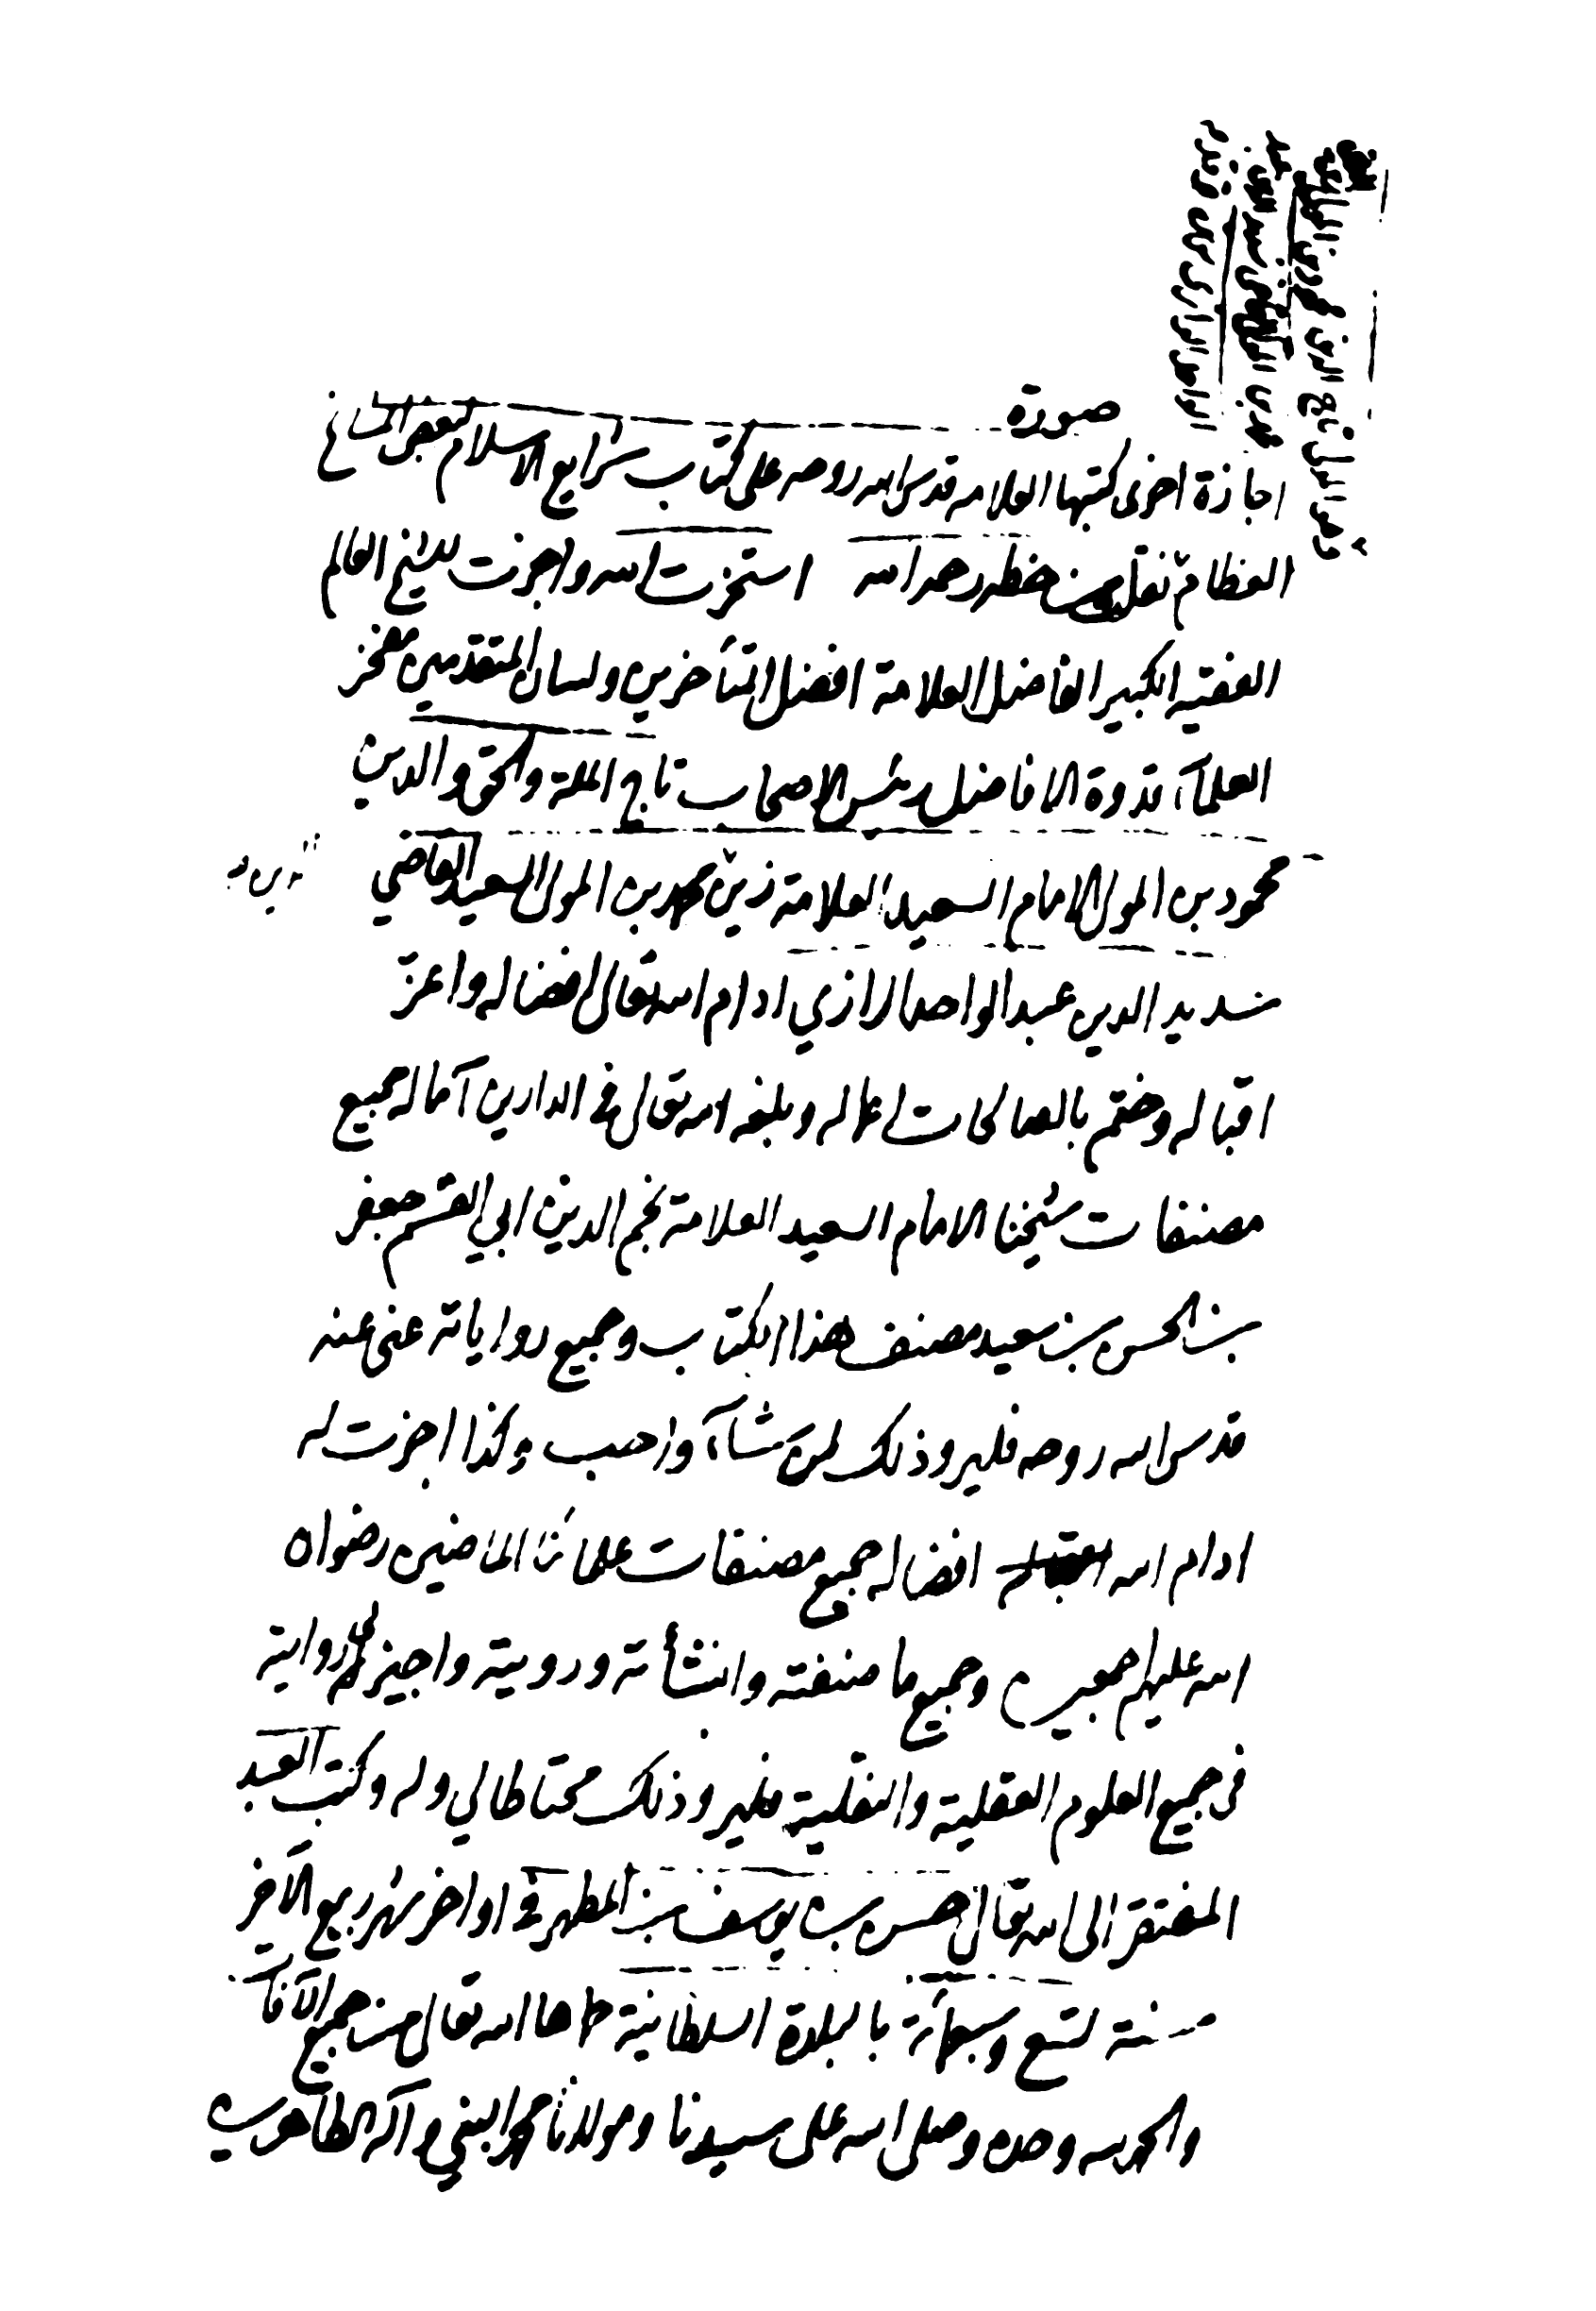 صورة
اجازة اخرى كتبها العلامه قدس الله روحه على كتاب شرايع الاسلام لبعض المشايخ
العظام نقل من خطه رحمه الله استخرت الله واجزت للشيخ العالم
الفقيه الكبير الفاضل العلامة افضل المتأخرين ولسان المتقدمين مفخر
العلمآء قدوة الافاضل رئيس الاصحاب تاج الملة والحق والدين
محمود بن المولى الامام السعيد العلامة زين محمد بن المولى السعيد القاضي
سديد الدين عبد الواحد الرازي ادام الله تعالى افضاله واعز
اقباله وختم بالصالحات اعماله وبلغه الله تعالى في الدارين آماله جميع
مصنفات شيخنا الامام السعيد العلامة نجم الدين ابي القسم جعفر
بن الحسن بن سعيد مصنف هذا الكتاب وجميع رواياته عني عنه
قدس الله روحه فليرو ذلك لمن شاء واحب وكذا اجزت له
ادام الله افضاله جميع مصنفات علمائنا الماضين رضوان
الله عليهم اجمعين وجميع ما صنفته وانشأته ورويته واجيز لي رواية
في جميع العلوم العقلية والنقلية فليرو ذلك محتاطا لي وله وكتب العبد
المفتقر الى الله تعالى حسن بن يوسف بن المطهر في اواخر شهر ربيع الآخر
سنة تسع وسبعمائة بالبلدة السلطانية حماها الله تعالى من جميع الآفات
والحمد لله وحده وصلى الله على سيدنا ومولانا محمد النبي وآله الطاهرين